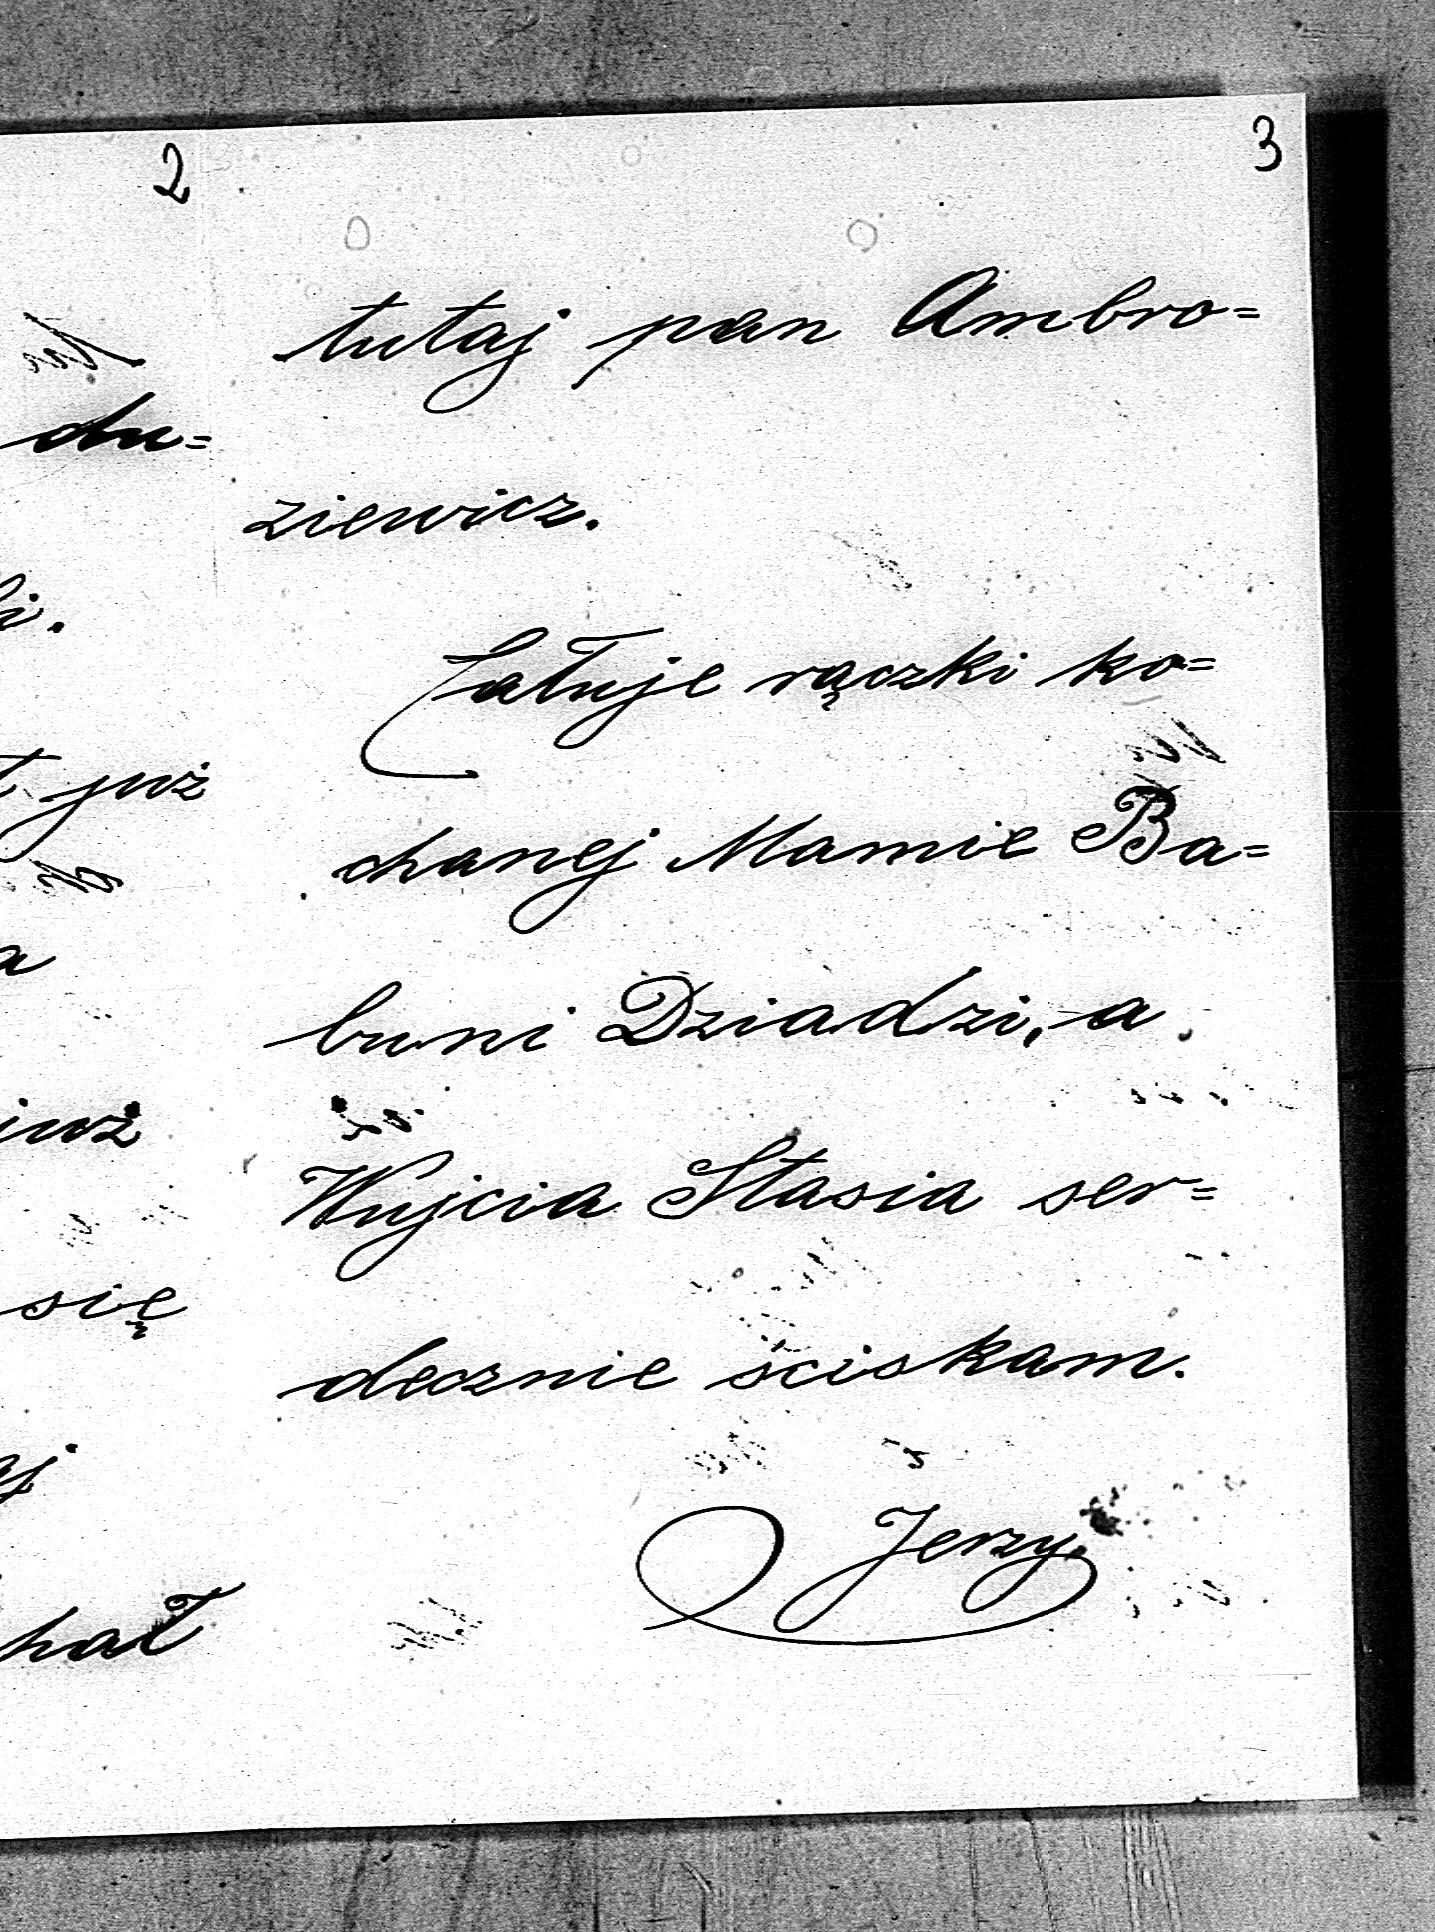 2
du=
już
się
3
tutaj pan Ambro=
ziewicz.
Całuje rączki ko=
chanej Mamie Ba=
buni Dziadzi, a
Wujcia Stasia ser=
decznie ściskam.
Jerzy.